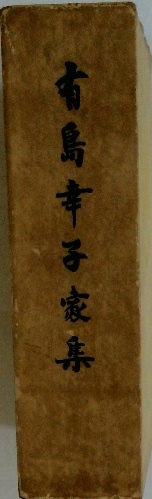 有島幸子家集